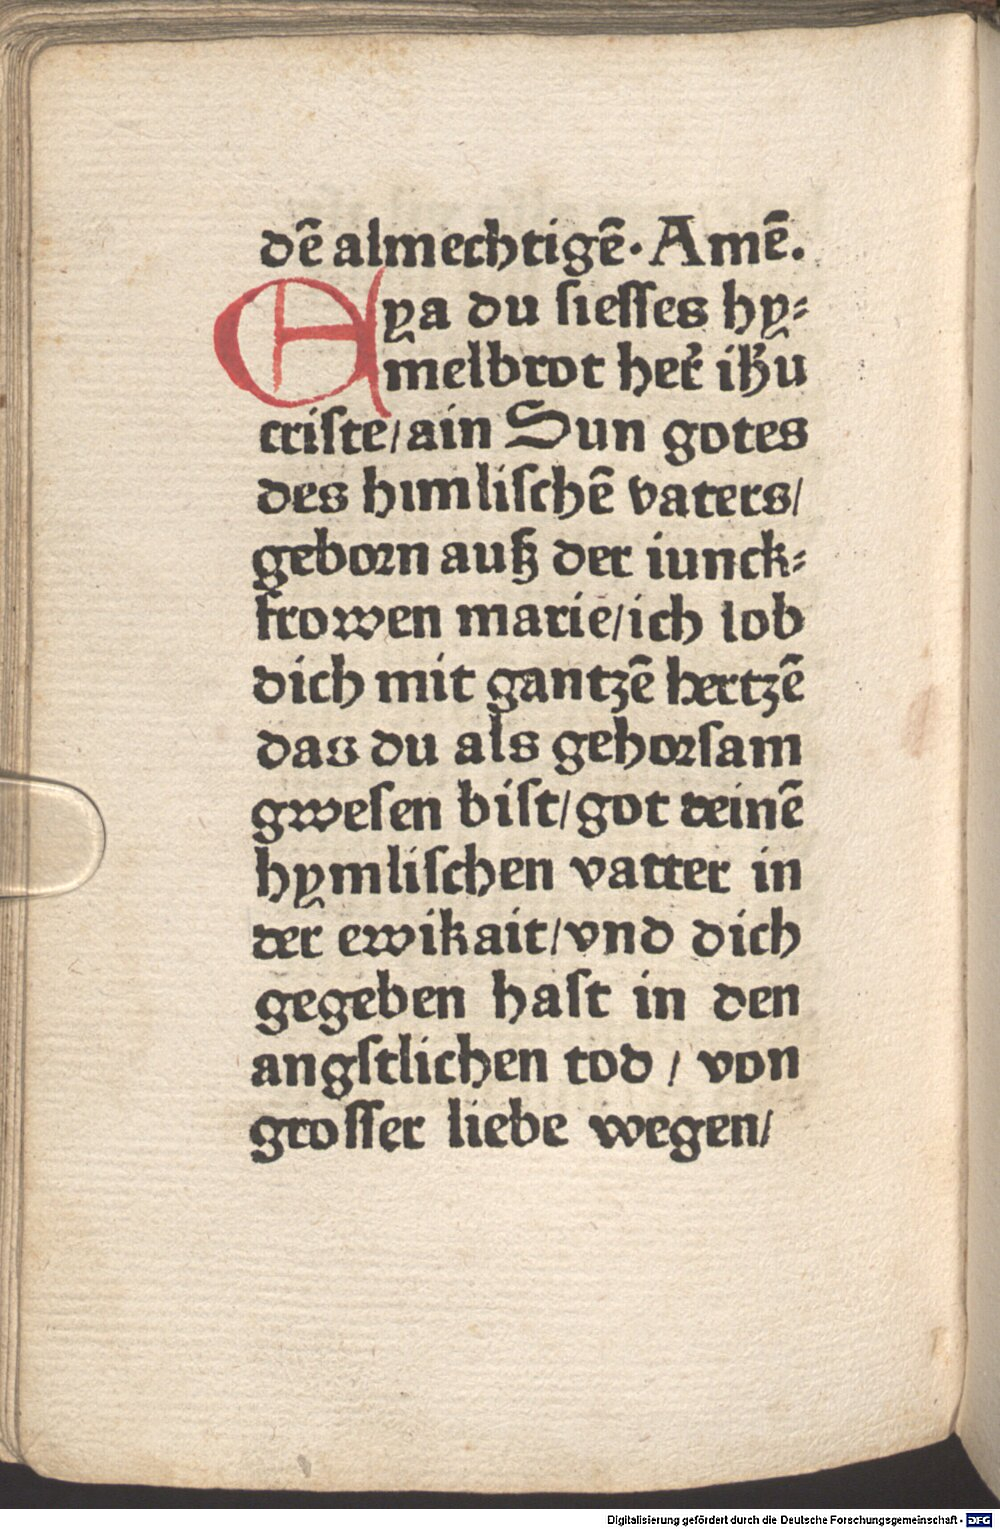 dē almechtigē. Amē.
Eya du siesses hy⸗
melbrot her̃ ihu
criste/ain Sun gotes
des himlischē vaters/
geborn auß der iunck⸗
frowen marie/ich lob
dich mit gantzē hertzē
das du als gehorsam
gwesen bist/got deinē
hymlischen vatter in
der ewikait/vnd dich
gegeben hast in den
angstlichen tod / von
grosser liebe wegen/
Digitalisierung gefördert durch die Deutsche Forschungsgemeinschaft - DFG